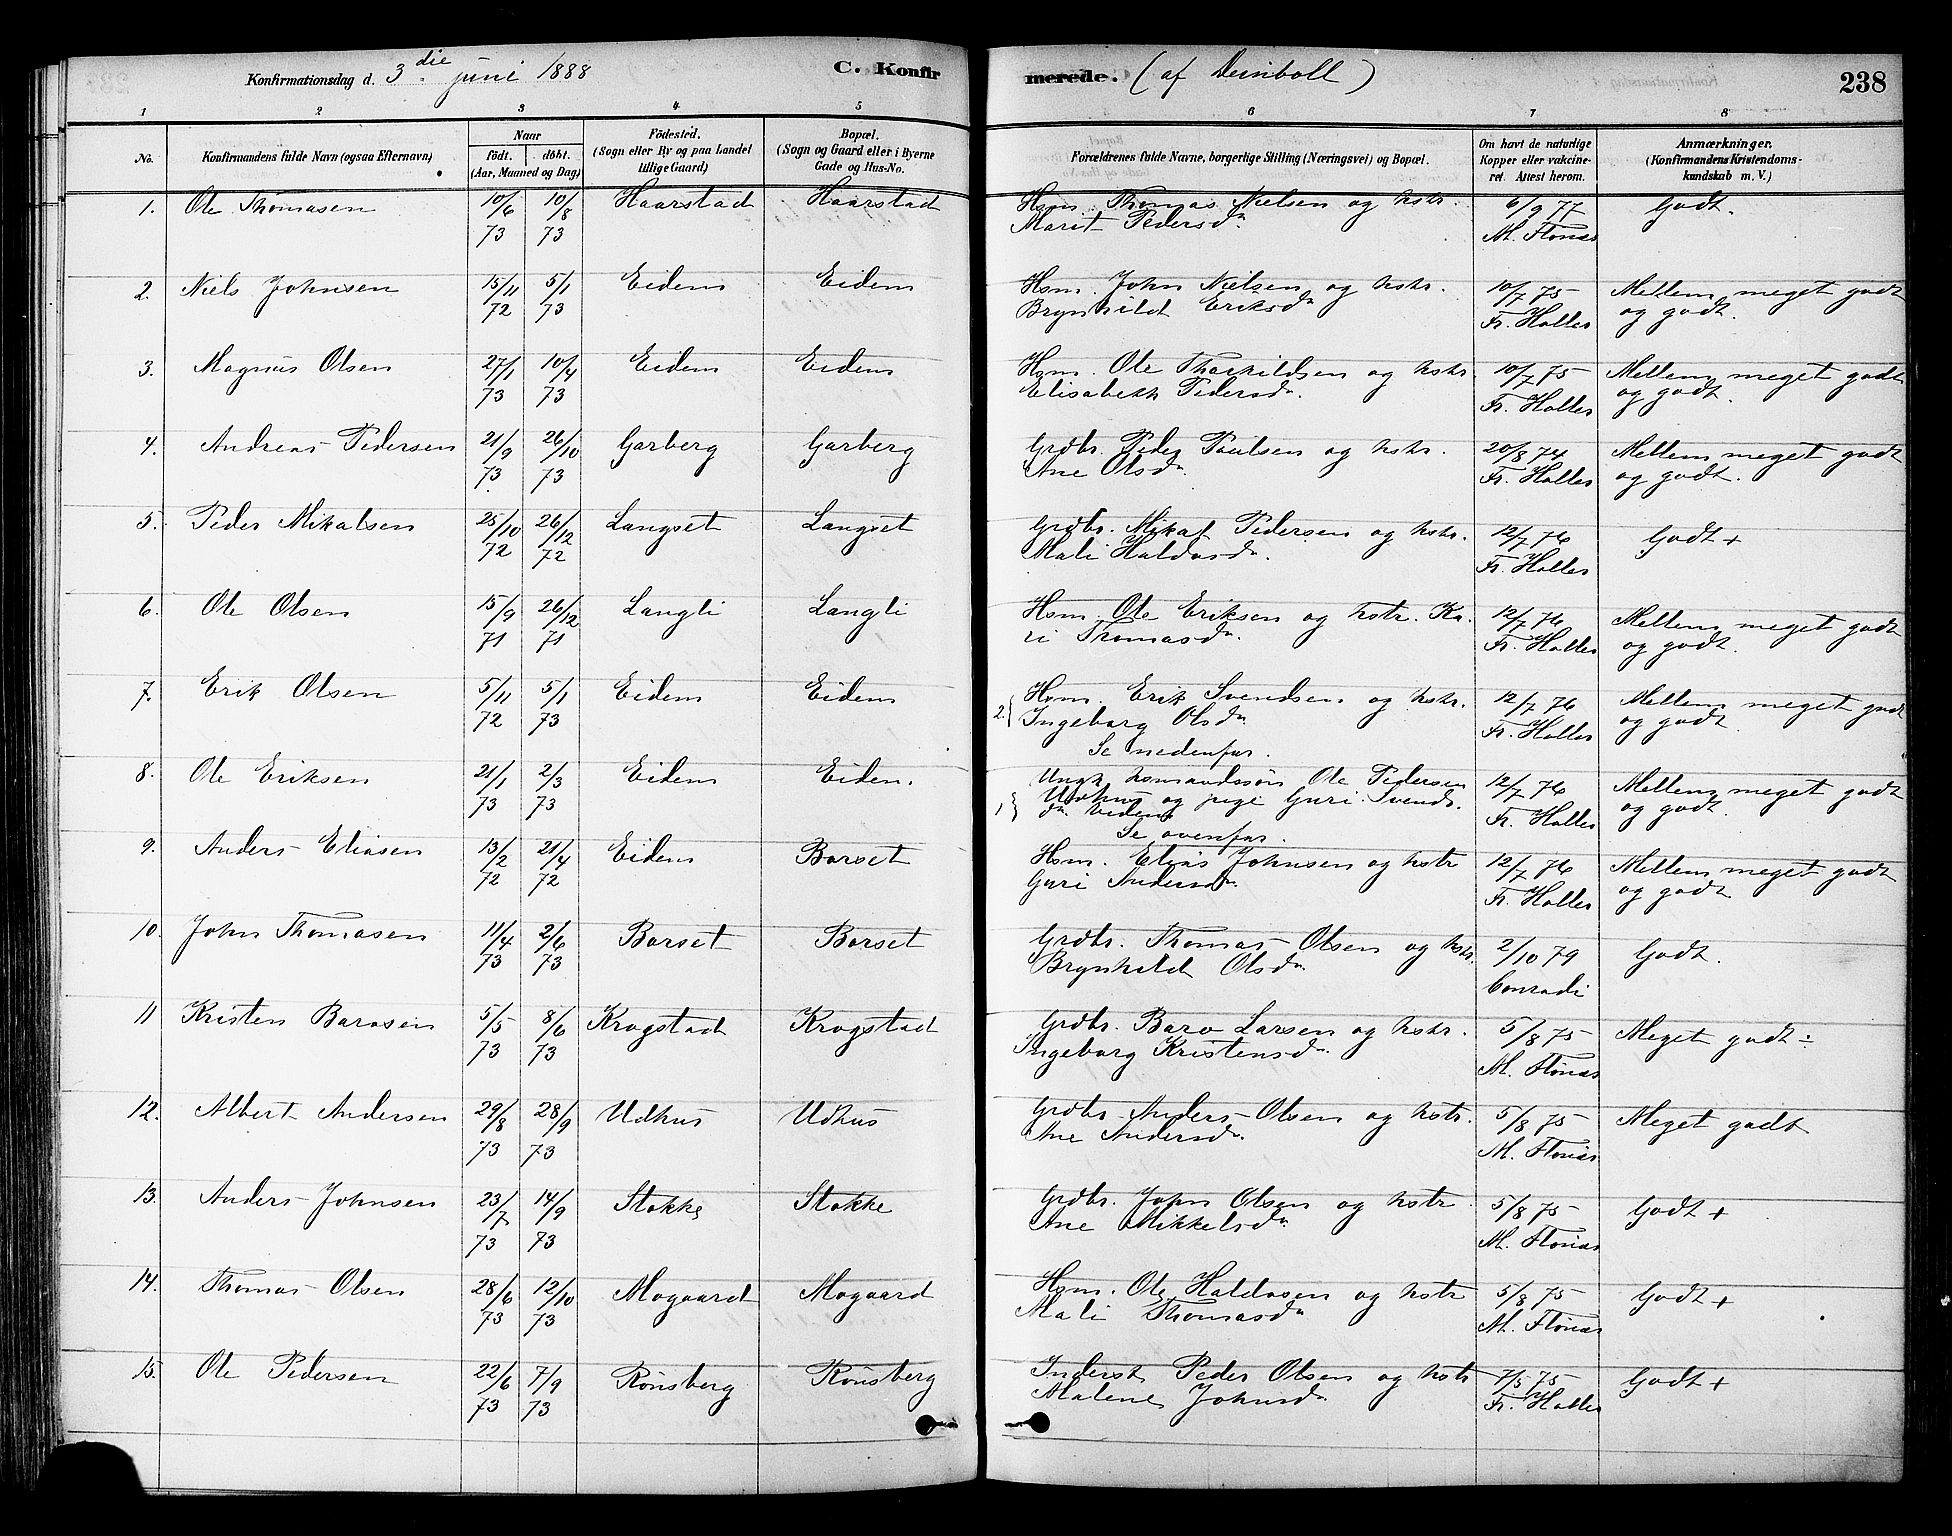 Konfirmationsdag d. 3die juni 1888 C. Konfirmerede. (af Deinboll) 238
1 2 3 4 5 6 7 8
No. Konfirmandens fulde Navn (ogsaa Efternavn) Naar født. døbt. (Aar, Maaned og Dag) Fødested. (Sogn eller By og paa Landet tillige Gaard) Bopæl. (Sogn og Gaard eller i Byerne Gade og Hus-No. Forældrenes fulde Navne, borgerlige Stilling (Næringsvei) og Bopæl. Om havt de naturlige Kopper eller vakcineret. Attest herom. Anmærkninger. (Konfirmandens Kristendomskundskab m. V.)
1. Ole Thomasen 10/6 73 10/8 73 Haarstad Haarstad Hsm. Thomas Nielsen og hstr. Marit Pedersdr. 6/9 77 M. Flønæs Godt.
2. Niels Johnsen 15/11 72 5/1 73 Eidem Eidem Hsm. John Nielsen og hstr. Brynhild Eriksdr 10/7 75 Fr. Holler Mellem meget godt og godt.
3. Magnus Olsen 27/1 73 10/4 73 Eidem Eidem Hsm. Ole Thorkildsen og hstr. Elisabeth Pedersdr. 10/7 75 Fr. Holler Mellem meget godt og godt.
4. Andreas Pedersen 21/9 73 26/10 73 Garberg Garberg Grdbr. Peder Paulsen og hstr. Ane Olsdr 20/8 74 Fr. Holler Mellem meget godt og godt.
5. Peder Mikalsen 25/10 72 26/12 72 Langset Langset Grdbr. Mikal Pedersen og hstr. Mali Haldosdr. 12/7 76 Fr. Holler Godt +
6. Ole Olsen 15/9 71 26/12 71 Langli Langli Hsm. Ole Eriksen og hstr. Kari Thomasdr. 12/7 76 Fr. Holler Mellem meget godt og godt.
7. Erik Olsen 5/11 72 5/1 73 Eidem Eidem 2.} Hsm. Erik Svendsen og hstr. Ingeborg Olsdr Se nedenfor. 12/7 76 Fr. Holler Mellem meget godt og godt
8. Ole Eriksen 21/1 73 2/3 73 Eidem Eidem. 1} Ungk. husmandssøn Ole Pedersen Udhus og pige Guri Svendsdr. Eidem Se ovenfor. 12/7 76 Fr. Holler Mellem meget godt og godt.
9. Anders Eliasen 13/2 72 21/4 72 Eidem Borset Hsm. Elias Johnsen og hstr Guri Andersdr. 12/7 76 Fr. Holler Mellem meget godt og godt
10. John Thomasen 11/4 73 2/6 73 Borset Borset Grdbr. Thomas Olsen og hstr. Brynhild Olsdr 2/10 79 Conradi Godt.
11 Kristen Barosen 5/5 73 8/6 73 Krogstad Krogstad Grdbr. Baro Larsen og hstr. Ingeborg Kristensdr. 5/8 75 M. Flønæs Meget godt ÷
12. Albert Andersen 29/8 73 28/9 73 Udhus Udhus Grdbr. Anders Olsen og hstr. Ane Andersdr. 5/8 75 M. Flønæs Meget godt
13. Anders Johnsen 23/7 73 14/9 73 Stokke Stokke Grdbr. John Olsen og hstr. Ane Mikkelsdr. 5/8 75 M. Flønæs Godt +
14. Thomas Olsen 28/6 73 12/10 73 Mogaard Mogaard Hsm. Ole Haldosen og hstr Mali Thomasdr 5/8 75 M. Flønæs Godt +
15. Ole Pedersen 22/6 73 7/9 73 Rønsberg Rønsberg Inderst Peder Olsen og hstr Malene Johnsdr 7/5 75 Fr. Holler Godt +